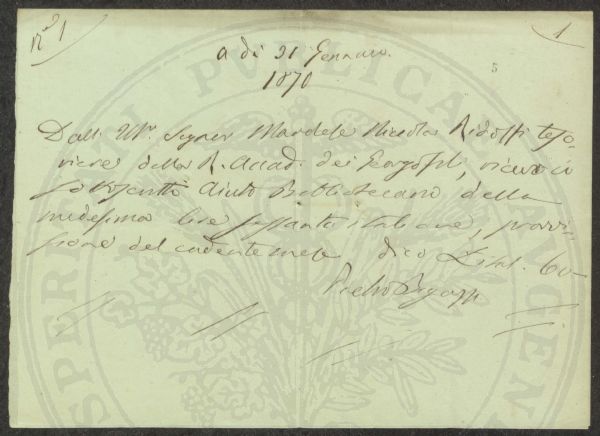 N° 1
1
5
a dì 31 Gennaio
1870
Dall' Ill. Signor Marchese Niccolò Ridolfi teso-
riere della R. Accad. dei Georgofili, ricevo io
sottoscritto Aiuto Bibliotecario della
medesima lire sessanta italiane, provvi-
sione del cadente mese dico L. ital. 60
Pietro Bigazzi
PUBLICAE